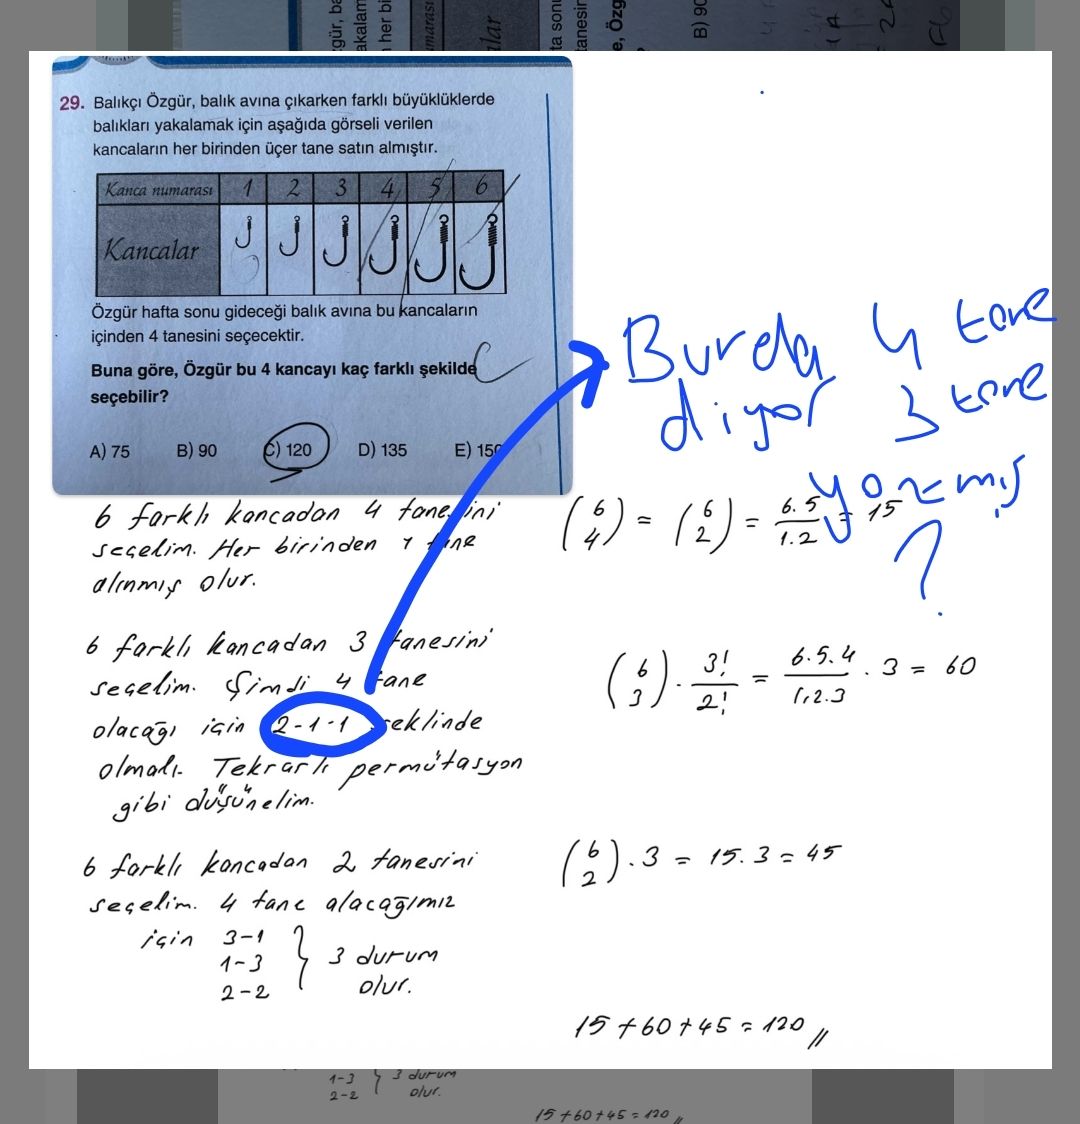 29. Balıkçı Özgür, balık avına çıkarken farklı büyüklüklerde
balıkları yakalamak için aşağıda görseli verilen
kancaların her birinden üçer tane satın almıştır.
Kanca numarası 1 2 3 4 5 6
Kancalar
Özgür hafta sonu gideceği balık avına bu kancaların
içinden 4 tanesini seçecektir.
Buna göre, Özgür bu 4 kancayı kaç farklı şekilde
seçebilir?
A) 75 B) 90 C) 120 D) 135 E) 150
Burda 4 tane
diyor 3 tane
yazmış
?
6 farklı kancadan 4 tanesini
seçelim. Her birinden 1 tane
alınmış olur.
(6 4) = (6 2) = 6.5/1.2 = 15
6 farklı kancadan 3 tanesini
seçelim. Şimdi 4 tane
olacağı için 2-1-1 şeklinde
olmalı. Tekrarlı permütasyon
gibi düşünelim.
(6 3) . 3!/2! = 6.5.4/1.2.3 . 3 = 60
6 farklı kancadan 2 tanesini
seçelim. 4 tane alacağımız
için 3-1
1-3
2-2
3 durum
olur.
(6 2) . 3 = 15.3 = 45
15+60+45 = 120 //
1-3
2-2
3 durum
olur.
15+60+45 = 120 //